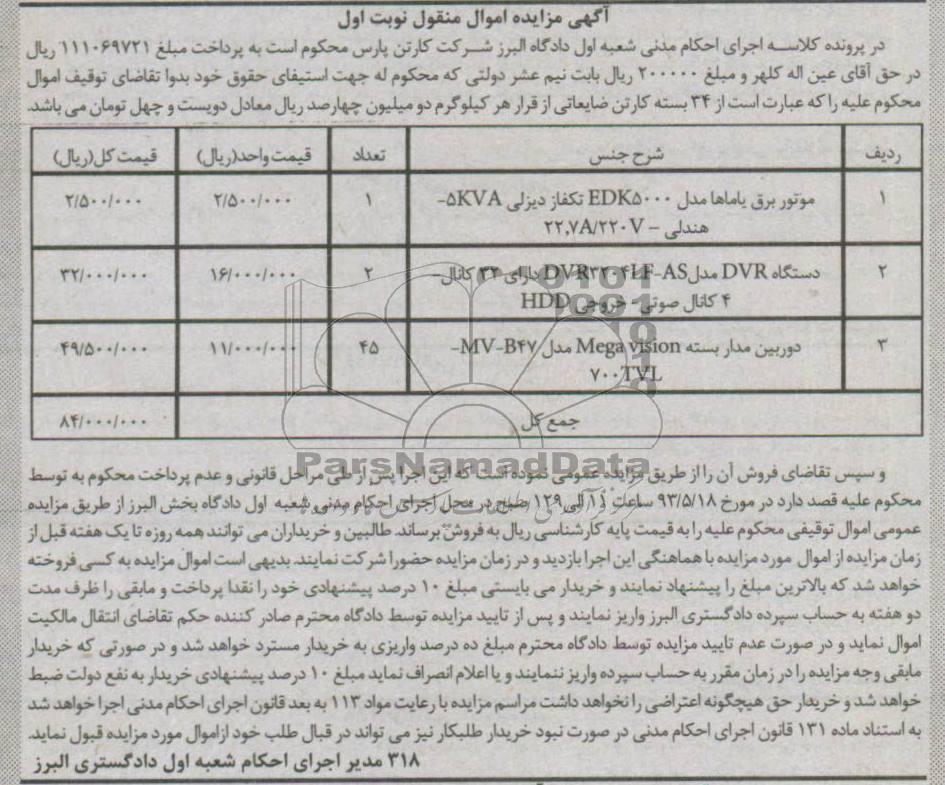 آگهی مزایده اموال منقول نوبت اول
در پرونده کلاسه اجرای احکام مدنی شعبه اول دادگاه البرز شرکت کارتن پارس محکوم است به پرداخت مبلغ ۱۱۱۰۶۹۷۲۱ ریال
در حق آقای عین اله کلهر و مبلغ ۲۰۰۰۰۰ ریال بابت نیم عشر دولتی که محکوم له جهت استیفای حقوق خود بدوا تقاضای توقیف اموال
محکوم علیه را که عبارت است از ۳۴ بسته کارتن ضایعاتی از قرار هر کیلوگرم دو میلیون چهارصد ریال معادل دویست و چهل تومان می باشد.
ردیف شرح جنس تعداد قیمت واحد(ریال) قیمت کل(ریال)
۱ موتور برق یاماها مدل EDK۵۰۰۰ تکفاز دیزلی ۵KVA- ۱ ۲/۵۰۰/۰۰۰ ۲/۵۰۰/۰۰۰
هندلی – ۲۲,۷A/۲۲۰V
۲ دستگاه DVR مدل DVR۳۲۰۴LF-AS دارای ۳۲ کانال- ۲ ۱۶/۰۰۰/۰۰۰ ۳۲/۰۰۰/۰۰۰
۴ کانال صوتی - خروجی HDD
۳ دوربین مدار بسته Mega vision مدل MV-B۴۷- ۴۵ ۱۱/۰۰۰/۰۰۰ ۴۹/۵۰۰/۰۰۰
۷۰۰TVL
جمع کل ۸۴/۰۰۰/۰۰۰
ParsNamadData
و سپس تقاضای فروش آن را از طریق مزایده عمومی نموده است که این اجرا پس از طی مراحل قانونی و عدم پرداخت محکوم به توسط
محکوم علیه قصد دارد در مورخ ۹۳/۵/۱۸ ساعت صبح در محل اجرای احکام مدنی شعبه اول دادگاه بخش البرز از طریق مزایده
عمومی اموال توقیفی محکوم علیه را به قیمت پایه کارشناسی ریال به فروش برساند. طالبین و خریداران می توانند همه روزه تا یک هفته قبل از
زمان مزایده از اموال مورد مزایده با هماهنگی این اجرا بازدید و در زمان مزایده حضورا شرکت نمایند. بدیهی است اموال مزایده به کسی فروخته
خواهد شد که بالاترین مبلغ را پیشنهاد نمایند و خریدار می بایستی مبلغ ۱۰ درصد پیشنهادی خود را نقدا پرداخت و مابقی را ظرف مدت
دو هفته به حساب سپرده دادگستری البرز واریز نمایند و پس از تایید مزایده توسط دادگاه محترم صادر کننده حکم تقاضای انتقال مالکیت
اموال نماید و در صورت عدم تایید مزایده توسط دادگاه محترم مبلغ ده درصد واریزی به خریدار مسترد خواهد شد و در صورتی که خریدار
مابقی وجه مزایده را در زمان مقرر به حساب سپرده واریز ننمایند و یا اعلام انصراف نماید مبلغ ۱۰ درصد پیشنهادی خریدار به نفع دولت ضبط
خواهد شد و خریدار حق هیچگونه اعتراضی را نخواهد داشت مراسم مزایده با رعایت مواد ۱۱۳ به بعد قانون اجرای احکام مدنی اجرا خواهد شد
به استناد ماده ۱۳۱ قانون اجرای احکام مدنی در صورت نبود خریدار طلبکار نیز می تواند در قبال طلب خود ازاموال مورد مزایده قبول نماید.
۳۱۸ مدیر اجرای احکام شعبه اول دادگستری البرز